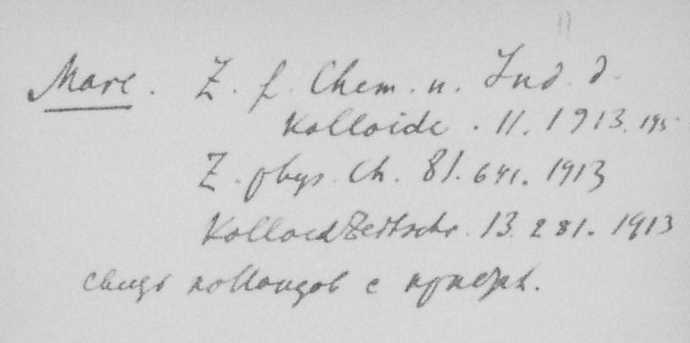 Marc. Z. f. Chem. u. Ind. d.
Kolloide. 11. 1913. 195
Z. phys. Ch. 81. 641. 1913
Kolloid Zeitschr. 13 281. 1913
коллоидов с